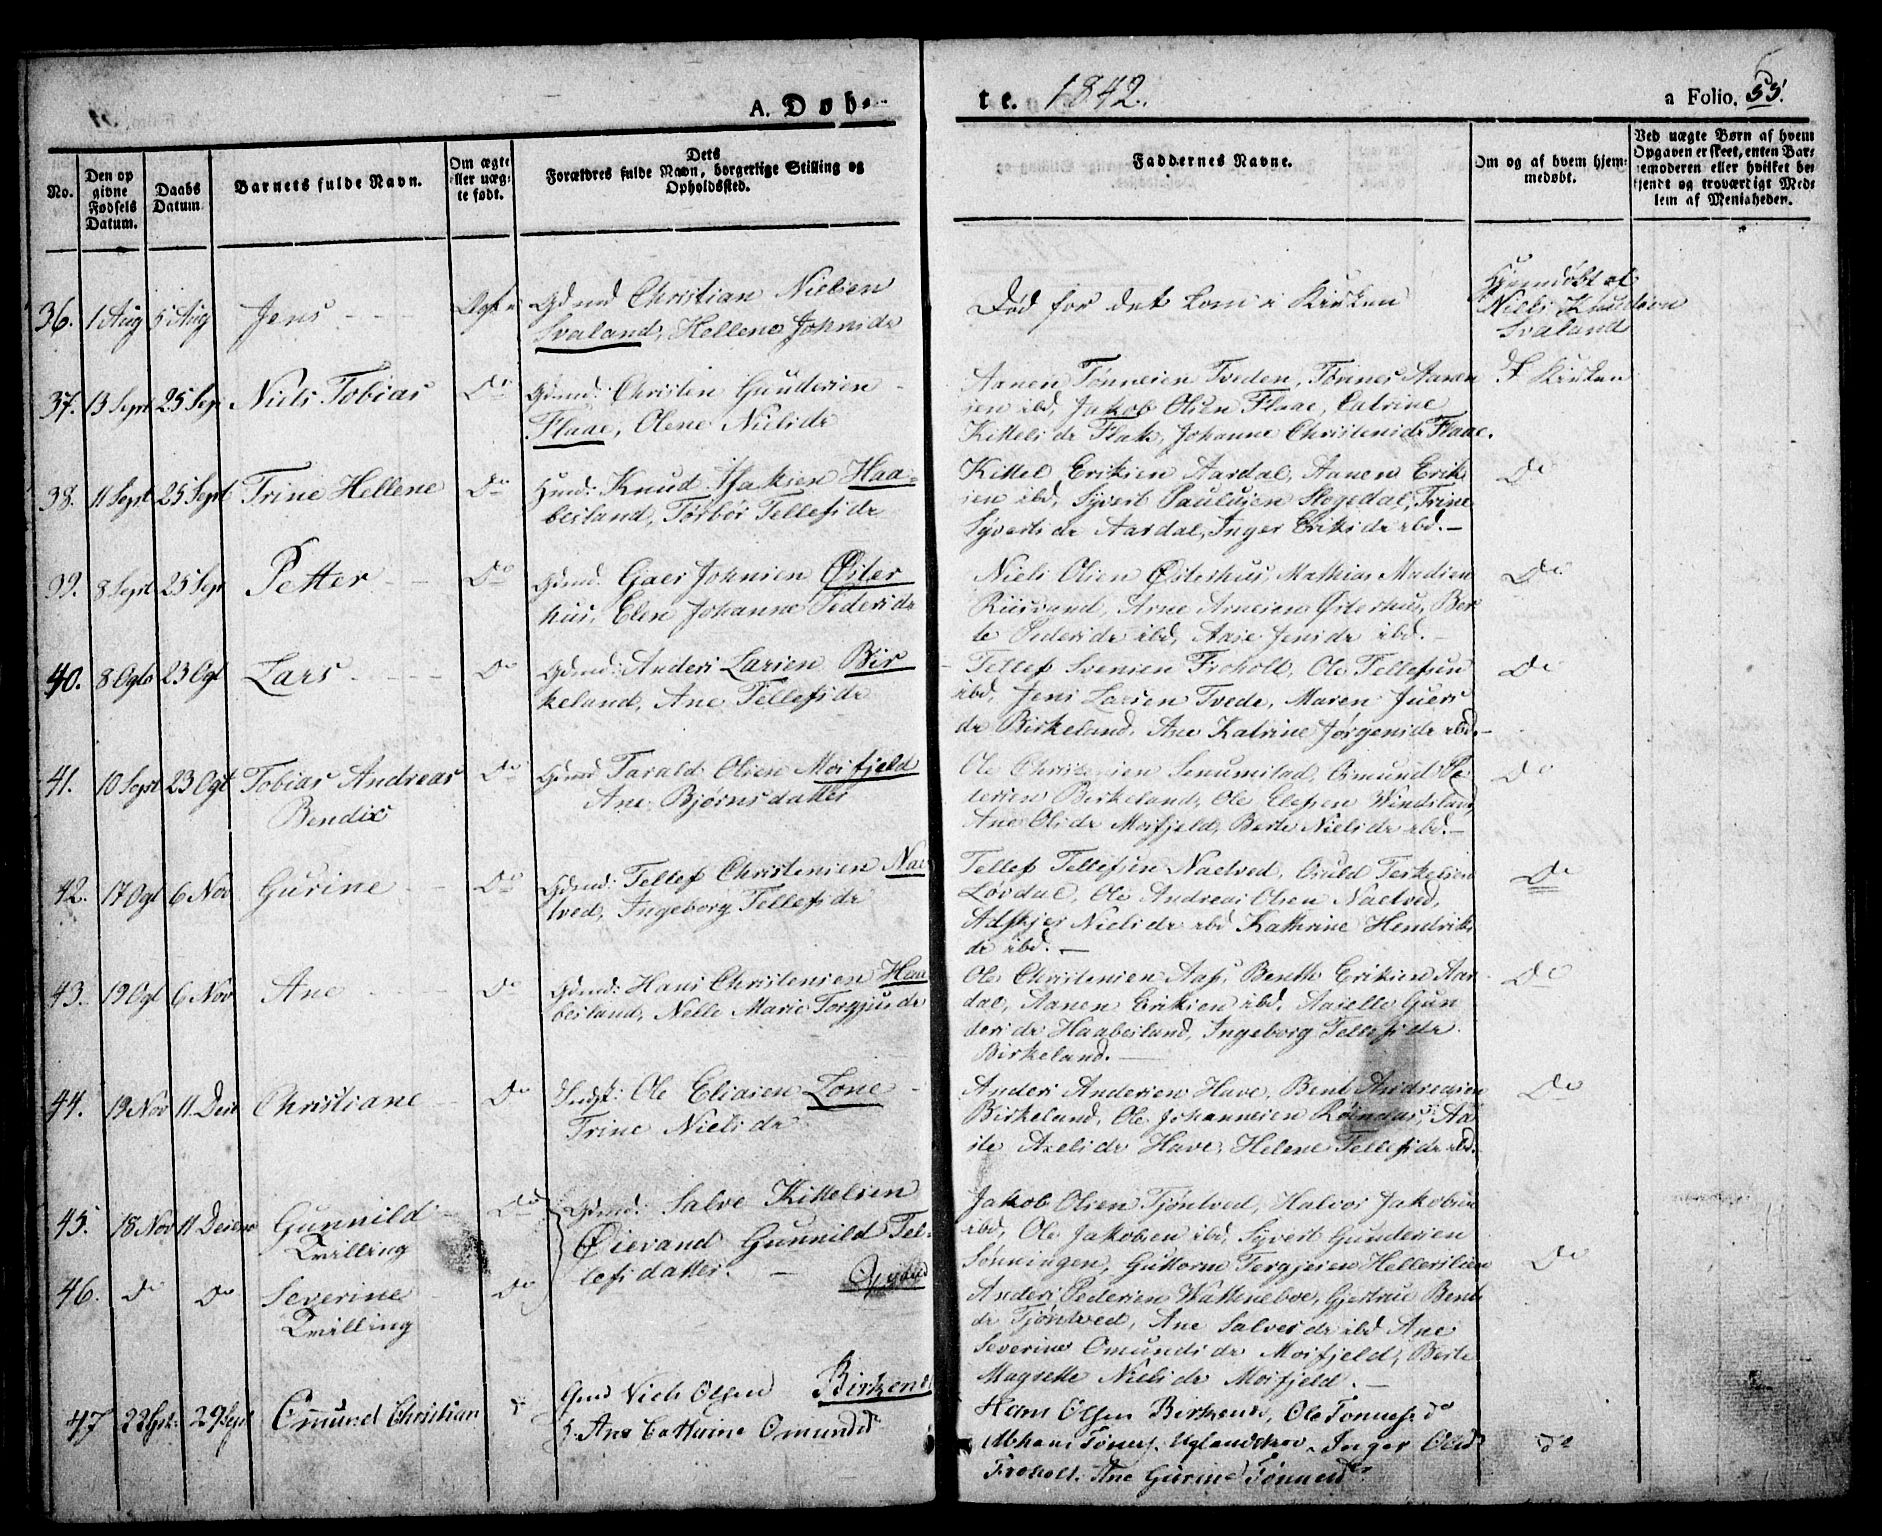 A. Døb-
te. 1842.
a Folio. 55.
No.
Den op
givne
Fødsels
Datum.
Daabs
Datum
Barnets fulde Navn.
Om ægte
eller uæg-
te født.
Dets
Forældres fulde Navn, borgerlige Stilling og
Opholdssted.
Faddernes Navne.
Om og af hvem hjem-
medøbt.
Ved uægte Børn af hvem
Opgaven er skeet, enten Bar-
nemoderen eller hvilket be-
kjendt og troværdigt Med-
lem af Menigheden.
36. 1 Aug 5 Aug Jens Ægte Gdmd Christian Nielsen
Svaland, Hellene Johnsdr
Død før det kom i Kirken
Hjemdøbt af
Niels Knudsen
Svaland
37. 13 Sept 25 Sep Niels Tobias Do Gdmd: Christen Gundersen
Flaae, Olene Nielsdr
Aanen Tønnesen Tveden, Tønnes Aanen
sen ibd, Jakob Olsen Flaae, Catrine
Kittelsdr Flak, Johanne Christensdr Flaae.
I Kirken
38. 11 Sept 25 Sept Trine Hellene Do Hmd: Knud Isaksen Haa-
besland, Torbor Tellefsdr
Kittel Eriksen Aardal, Aanen Erik
sen ibd, Syvert Paulusen Stogedal, Trine
Syvertsdr Aardal, Inger Eriksdr ibd.
Do
39. 8 Sept 25 Sep Petter Do Gdmd: Goer Johnsen Øster
hus, Elen Johanne Pedersdr
Niels Olsen Østerhus, Mathias Madsen
Risvand, Arne Arnesen Østerhus, Ber
te Pedersdr ibd, Aase Jensdr ibd.
Do
40. 8 Ogto 23 Ogt Lars Do Gdmd: Anders Larsen Bir
keland, Ane Tellefsdr
Tellef Svensen Froholt, Ole Tellefsen
ibd, Jens Larsen Tvede, Maren Juers
dr Birkeland, Ane Katrine Jørgensdr ibd.
Do
41. 10 Sept 23 Ogt Tobias Andreas
Bendix
Do Gdmd Tarald Olsen Mosfjeld
Ane Bjørnsdatter
Ole Senumstad, Omund Pe
dersen Birkeland, Ole Elefsen Windsland,
Ane Olsdr Mosfjeld, Berte Nielsdr ibd.
Do
42. 17 Ogt 6 Nov Gurine Do Gdmd: Tellef Christensen Nae
tved, Ingeborg Tellefsdr
Tellef Tellefsen Naetved, Osuld Terkelsen
Løvdal, Ole Andreas Olsen Naetved,
Nielsdr ibd Kathrine Hendriks
dr ibd.
Do
43. 19 Ogt 6 Nov Ane Do Gdmd: Hans Christensen Haa
besland, Nelle Marie Torgjusdr
Ole Christensen Aas, Benth Eriksen Aar
dal, Aanen Eriksen ibd, Gun
dersdr Haabesland, Ingeborg Tellefsdr
Birkeland.
Do
44. 19 Nov 11 Dese Christiane Do Ole Eliasen Lone
Trine Nielsdr
Anders Andersen Have, Bent Andreasen
Birkeland, Ole Johannesen Røindas, Aa
ste Axelsdr Have, Helene Tellefsdr ibd.
Do
45. 18 Nov 11 Desem Gunnild
Tvilling
Do Gdmd: Salve Kittelsen
Øievand Gunnild Tel-
lefsdatter.
46. Do Do Severine
Tvilling
Do
Jakob Olsen Tjøntved, Halvor Jakobsen
ibd, Ole Jakobsen ibd, Syvert Gundersen
Sønningen, Guttorm Tergjesen Hellerslien
Anders Pedersen Watteneboe, Gjertrue Bents
dr Tjøntved, Ane Salvesdr ibd Ane
Severine Omundsdr Mosfjeld, Berte
Magrette Nielsdr Mosfjeld.
Do
47 22 29 Sept Omund Christian Gmd Niels Olsen Birkenes
Ane Cathrine Omundsd
Hans Olsen Birkenes, Ole Tønnes. do
Uglandskov, Inger Olsd
Froholt. Ane Gurine Tønnesd
do